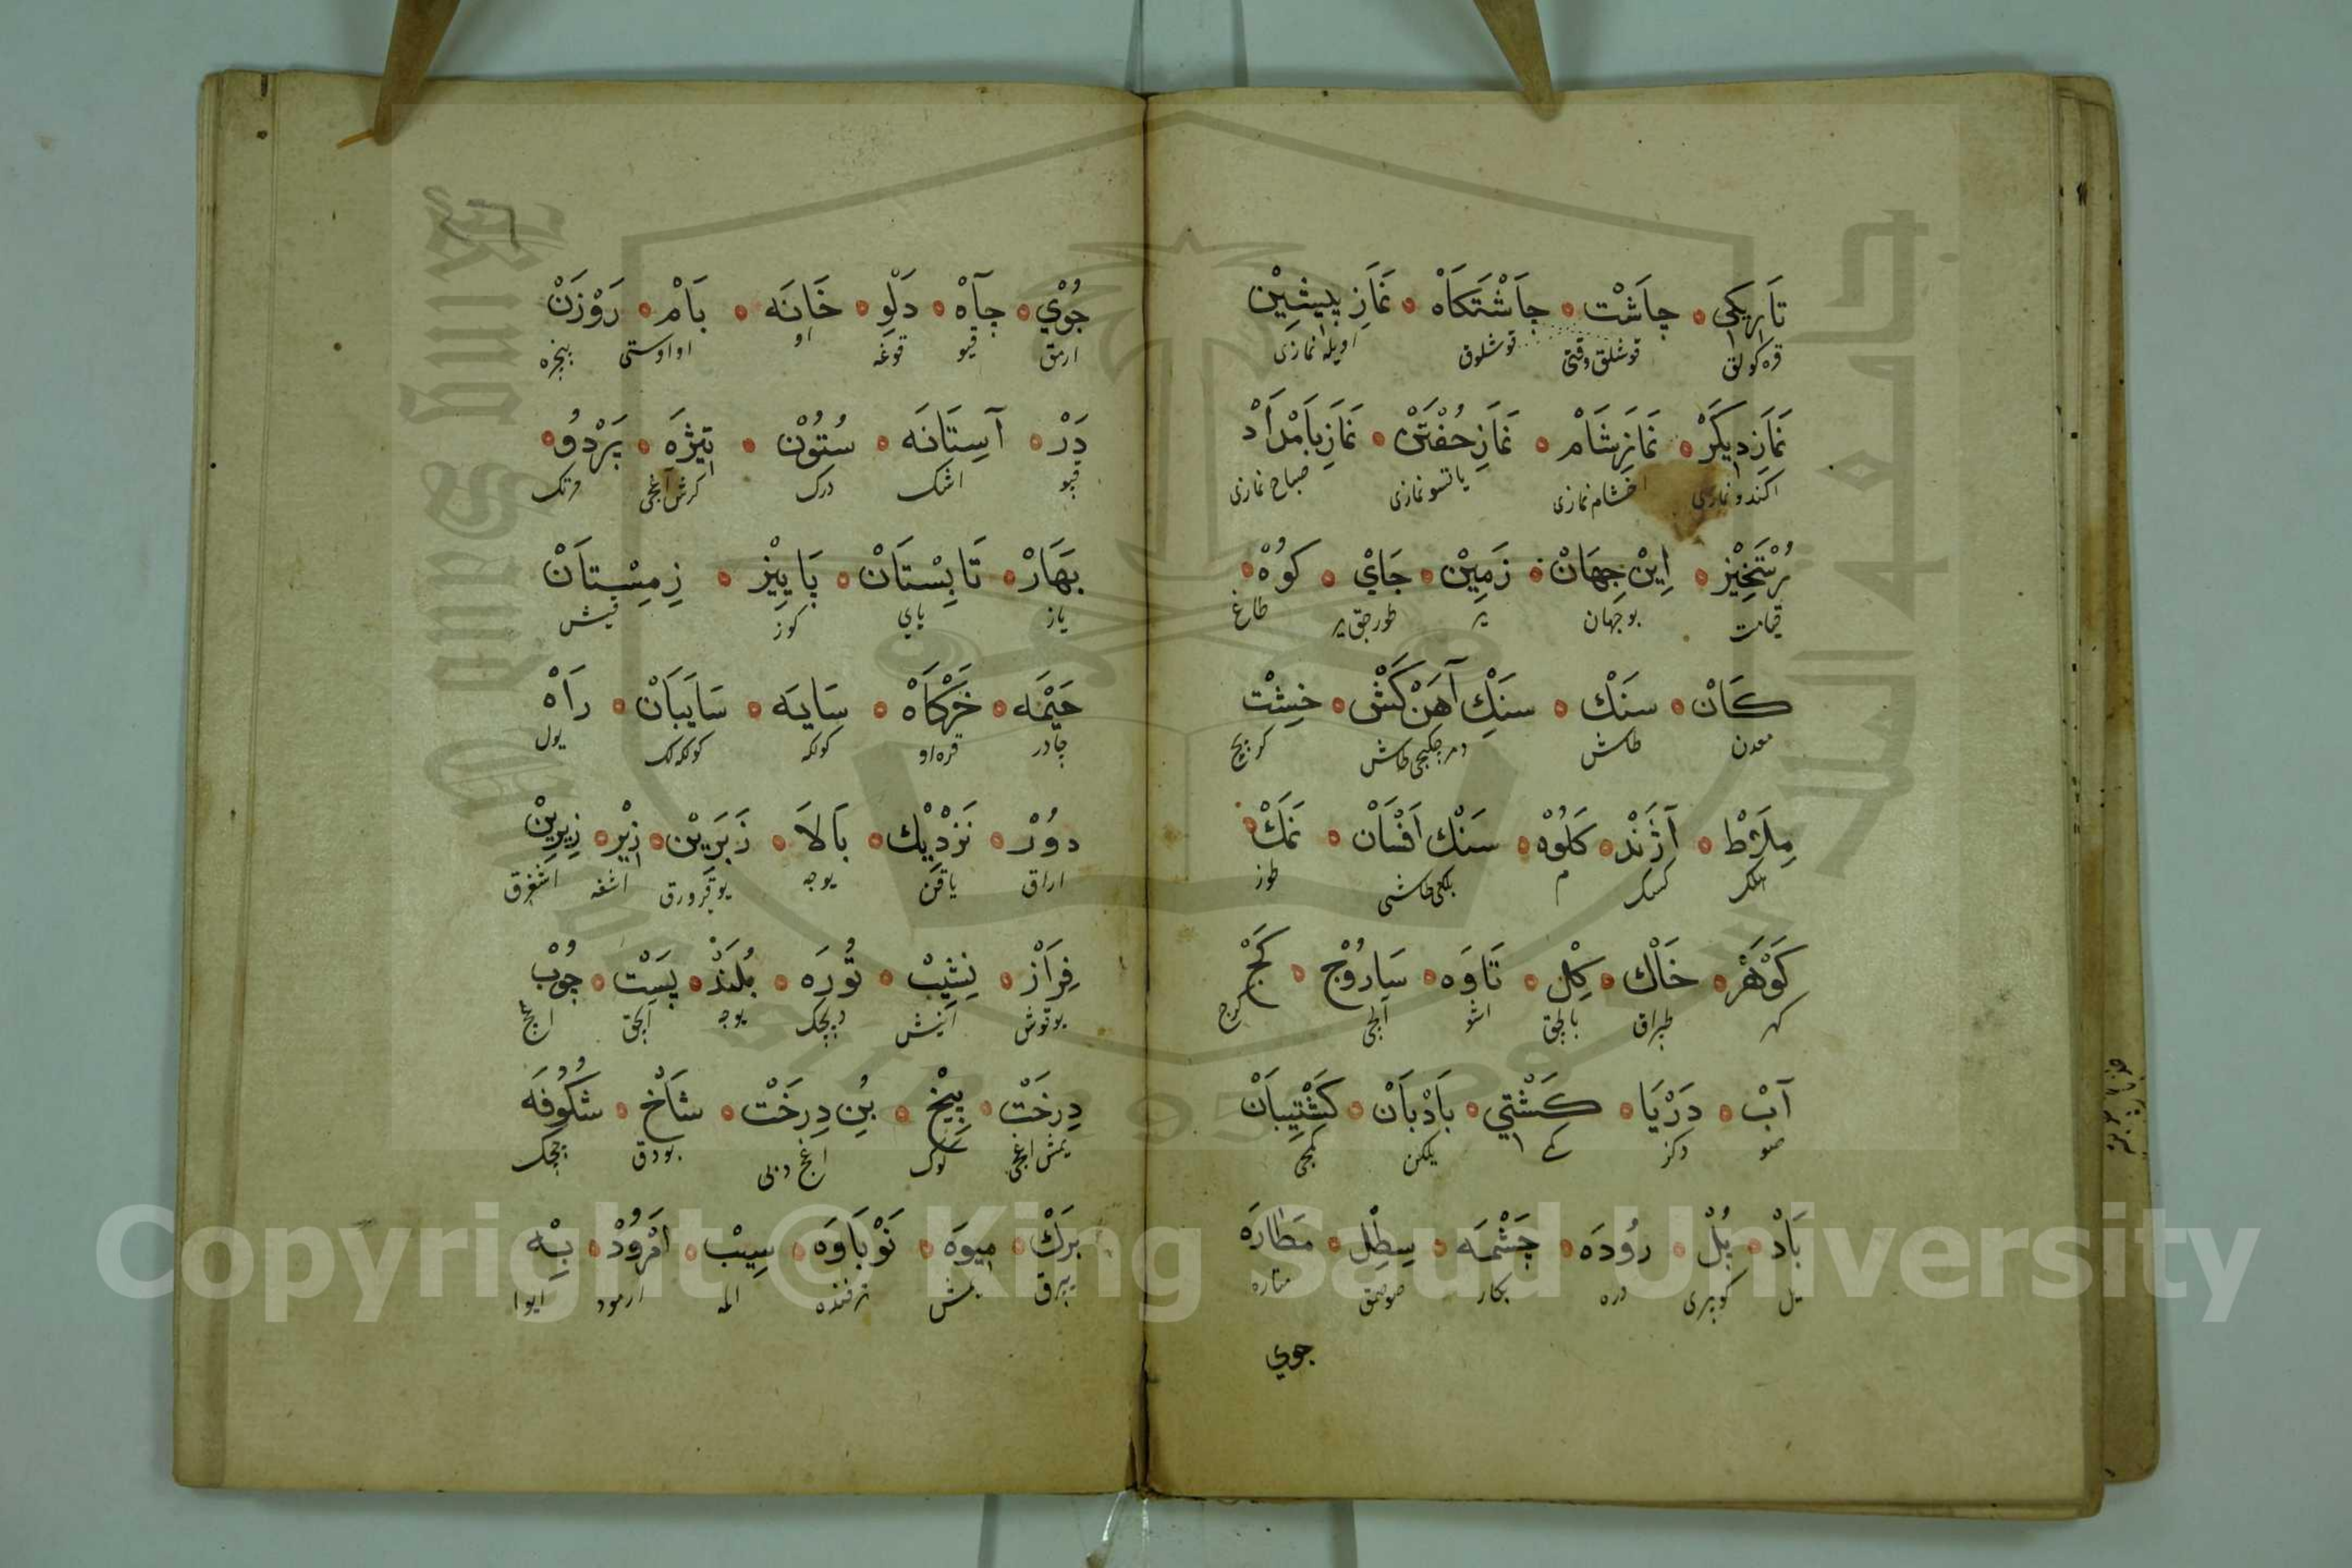 تَارِيكِي جَاشْت جَاشْتَكَاهْ نَمَازِ پِيشِيْن
قره كولق قوشلق وقتى قوشلوق اويله نمازى
نَمَازِ دِيكَرْ نَمَازِ شَامْ نَمَازِ خُفْتَنْ نَمَازِ بَامْدَادْ
اكندو نمازى اخشام نمازى ياتسو نمازى صباح نمازى
رُسْتَخِيْز اِيْن جِهَانْ زَمِيْن جَايْ كُوْهْ
قيامت بو جهان ير طورجق ير طاغ
كَانْ سَنْك سَنْكِ آهَنْ كَشْ خِشْت
معدن طاش دمر چكيجى طاش كرپيچ
مِلَاطْ آژَنْد كَلُوْه سَنْك اَفْسَانْ نَمَكْ
م بلكى طاشى طوز
كَوْهَرْ خَاكْ كِلْ تَاوَه سَارُوْج كَجْ
كهر طپراق بالچق كرج
آبْ دَرْيَا كَشْتِي بَادْبَانْ كَشْتِيبَانْ
صو دكز يلكن كمجى
بَادْ پُلْ رُودَه چَشْمَه سِطِلْ مَطَارَه
يل كوپرى دره پكار متاره
جوي
جُوْي چَاهْ دَلْوِ خَانَه بَامْ رَوْزَنْ
ارمق قيو قوغه او او اوستى پنجره
دَرْ آسِتَانَه سُتُوْن تِيْژَه پَرْدُو
قپو اشك درك كرش اغجى مرتك
بَهَارْ تَابِسْتَانْ پَايِيْز زِمِسْتَانْ
ياز ياي كوز قيش
خَيْمَه خَرْكَاهْ سَايَه سَايَبَانْ رَاهْ
چادر قره او كولكه كولكه لك يول
دُوْر نَزْدِيْك بَالَا زَبَرِيْن زِيْر زِيرِيْن
اراق ياقن يوجه اشغه
فِرَازْ نِشِيْب تُورَه بُلَنْد پَسْت چُوْب
يوقوش اينش يوجه الچق
دِرَخْت بِيْخ بُنِ دِرَخْت شَاخ شُكُوفَه
يمش اغجى كوك اغج دبى بودق چچك
بَرْكْ مِيوَه نَوْبَاوَه سِيْب اَمْرُوْدْ بِهْ
يپرق يمش ترفنده الما ارمود ايوا
Copyright © King Saud University